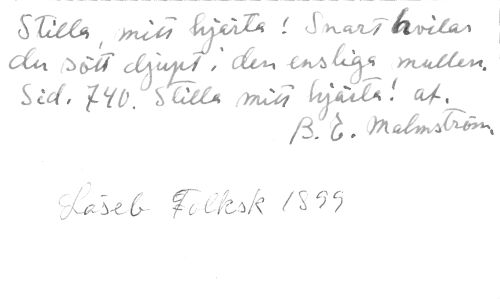 Stilla, mitt hjärta! Snart hvilar
du sött djupt i den ensliga mullen.
Sid. 740. Stilla mitt hjärta! af.
B. E. Malmström.
Läseb Folksk 1899